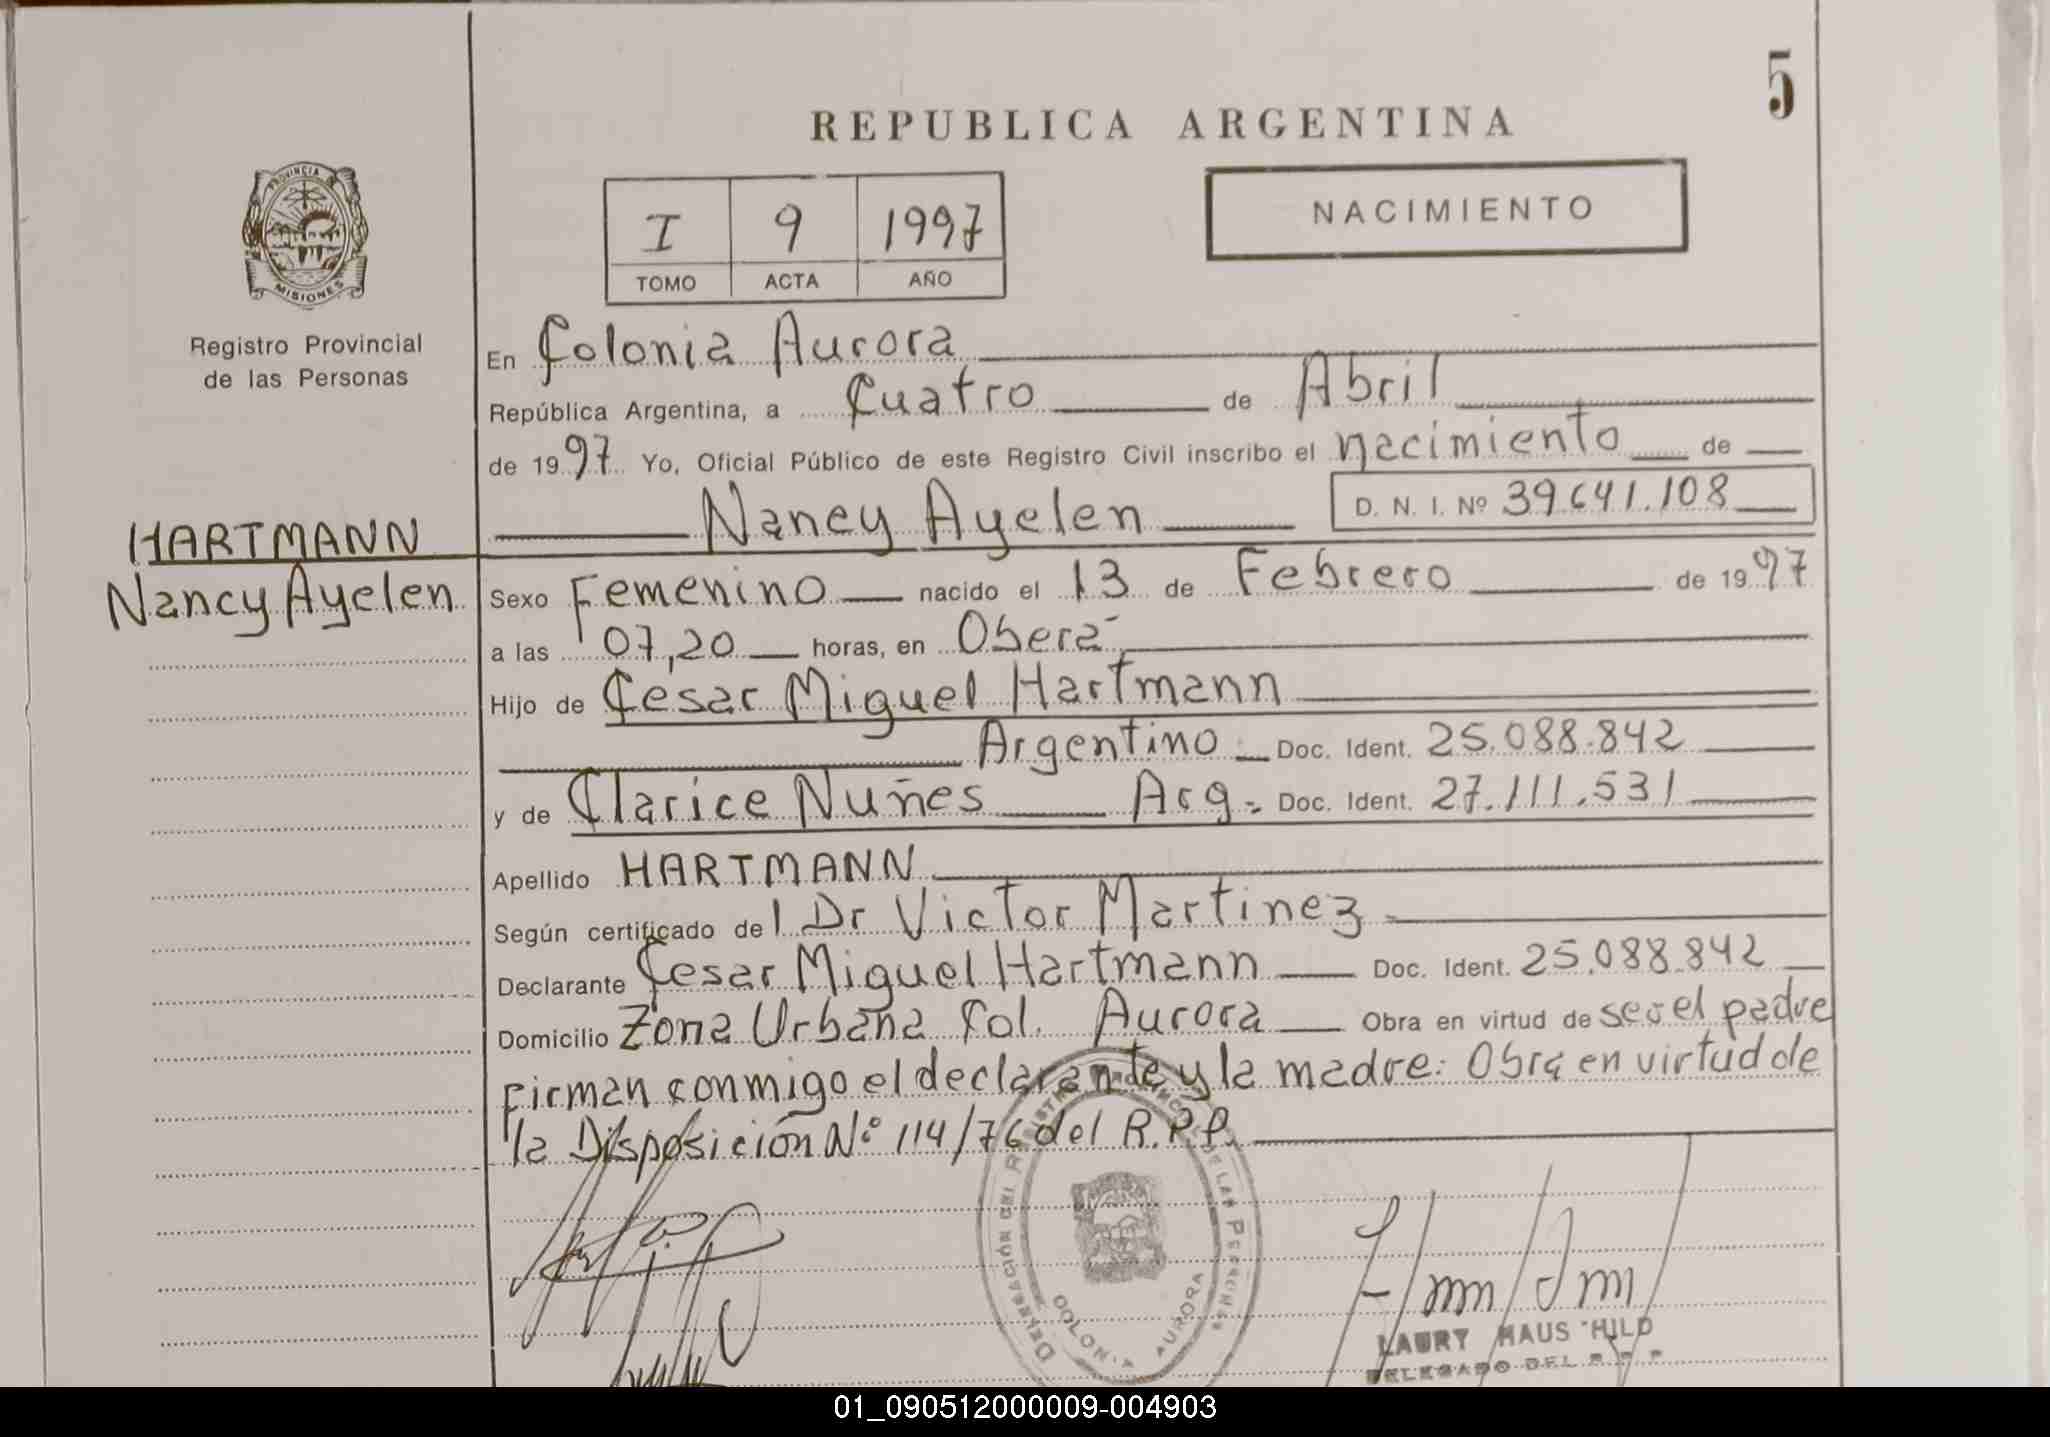 5
REPUBLICA ARGENTINA
NACIMIENTO
I 9 1997
TOMO ACTA AÑO
PROVINCIA DE
MISIONES
Registro Provincial
de las Personas
HARTMANN
Nancy Ayelen
En Colonia Aurora
República Argentina, a Cuatro de Abril
de 1997 Yo, Oficial Público de este Registro Civil inscribo el nacimiento de
Nancy Ayelen D. N. I. Nº 39.641.108
Sexo Femenino nacido el 13 de Febrero de 1997
a las 07,20 horas, en Oberá
Hijo de Cesar Miguel Hartmann
Argentino Doc. Ident. 25.088.842
y de Clarice Nuñes Arg. Doc. Ident. 27.111.531
Apellido HARTMANN
Según certificado del Dr Victor Martinez
Declarante Cesar Miguel Hartmann Doc. Ident. 25.088.842
Domicilio Zona Urbana Col. Aurora Obra en virtud de ser el padre
Firman conmigo el declarante y la madre: Obra en virtud de
la Disposición Nº 114/76 del R.P.P.
DE LAS PERSONAS
COLONIA AURORA
LAURY HAUS HILD
DELEGADO DEL
01_090512000009-004903